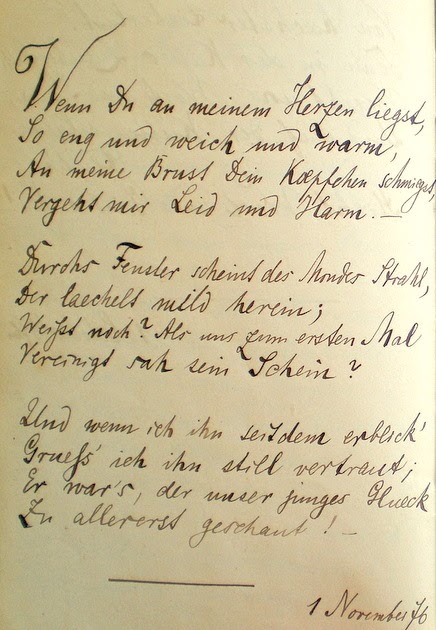 Wenn Du an meinem Herzen liegst,
So eng und weich und warm,
An meine Brust Dein Kœpfchen schmiegst,
Vergeht mir Leid und Harm. —
Durchs Fenster scheint des Mondes Strahl,
Der laechelt mild herein;
Weißt noch? Als uns zum ersten Mal
Vereinigt sah sein Schein?
Und wenn ich ihn seitdem erblick'
Grueß' ich ihn still vertraut;
Er war's, der unser junges Glueck
Zu allererst geschaut! —
1 November 76